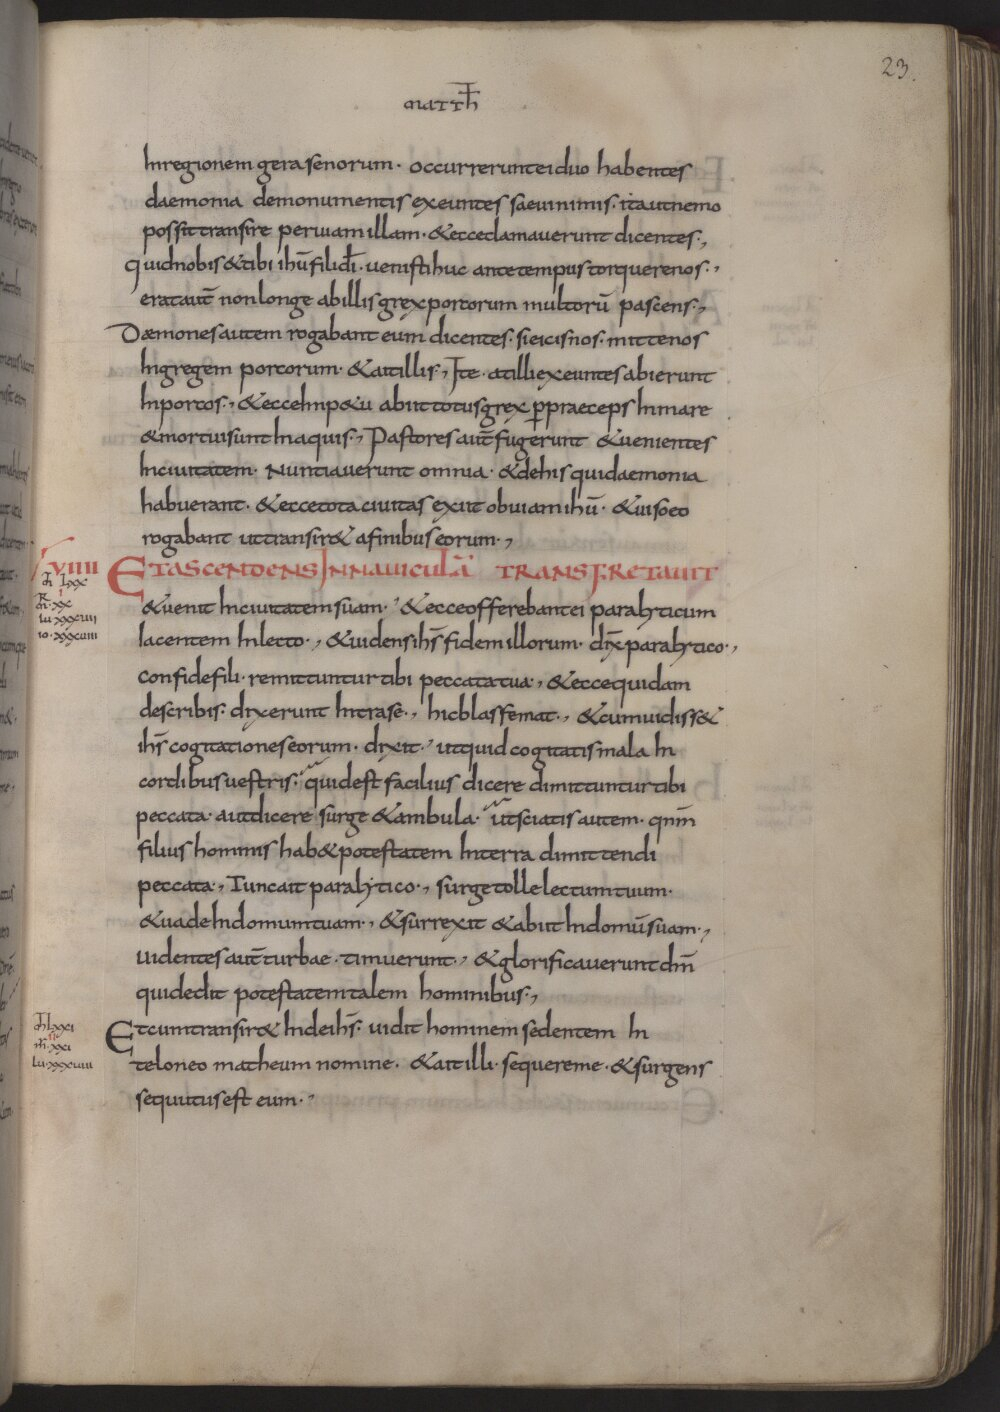 23.
MATTH̄
In regionem gerasenorum· occurrerunt ei duo habentes
daemonia de monumentis exeuntes saevi nimis· ita ut nemo
possit transire per viam illam· & ecce clamaverunt dicentes·,
quid nobis & tibi ihū fili dī· venisti huc ante tempus torquere nos·,
erat aut̄ non longe ab illis grex porcorum multorū pascens·,
Daemones autem rogabant eum dicentes· si eicis nos· mitte nos
In gregem porcorum· & ait illis, Ite· at illi exeuntes abierunt
In porcos·, & ecce Inp&u abiit totus grex p̄ praeceps In mare
& mortui sunt In aquis·, Pastores aut̄ fugerunt & venientes
In civitatem· Nuntiaverunt omnia· & de his qui daemonia
habuerant· & ecce tota civitas exiit obviam ihū· & viso eo
rogabant ut transir& a finibus eorum·,
VIIII
ET ASCENDENS IN NAVICULĀ TRANSFRETAVIT
m̄ lxx
R
m̄ xx
lu xxxvii
io xxxviii
& venit In civitatem suam·, & ecce offerebant ei paralyticum
Iacentem In lecto·, & videns ihs̄ fidem illorum· dix̄ paralytico·,
confide fili· remittuntur tibi peccata tua·, & ecce quidam
de scribis· dixerunt Intra se·, hic blasfemat·, & cum vidiss&
ihs̄ cogitationes eorum· dixit·, ut quid cogitatis mala In
cordibus vestris· quid est facilius dicere dimittuntur tibi
peccata· aut dicere surge & ambula· ut sciatis autem· qnm̄
filius hominis hab& potestatem In terra dimittendi
peccata·, Tunc ait paralytico·, surge tolle lectum tuum·
& vade In domum tuam·, & surrexit & abiit In domū suam·,
videntes aut̄ turbae· timuerunt·, & glorificaverunt dm̄
qui dedit potestatem talem hominibus·,
m̄ lxxi
m̄ xxi
lu xxxviii
Et cum transir& Inde ihs̄· vidit hominem sedentem In
teloneo matheum nomine· & ait illi· sequere me· & surgens
sequutus est eum·,